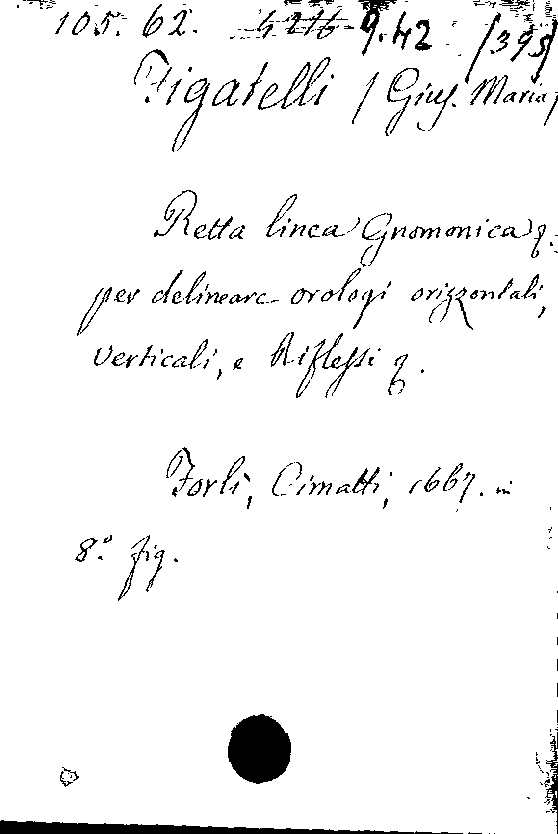 105. 62. 9.42 /395/
Figatelli /Gius. Maria/
Retta linea Gnomonica q.
per delineare orologi orizzontali,
verticali, e Riflessi q.
Forlì, Cimatti, 1667. in
8.º fig.